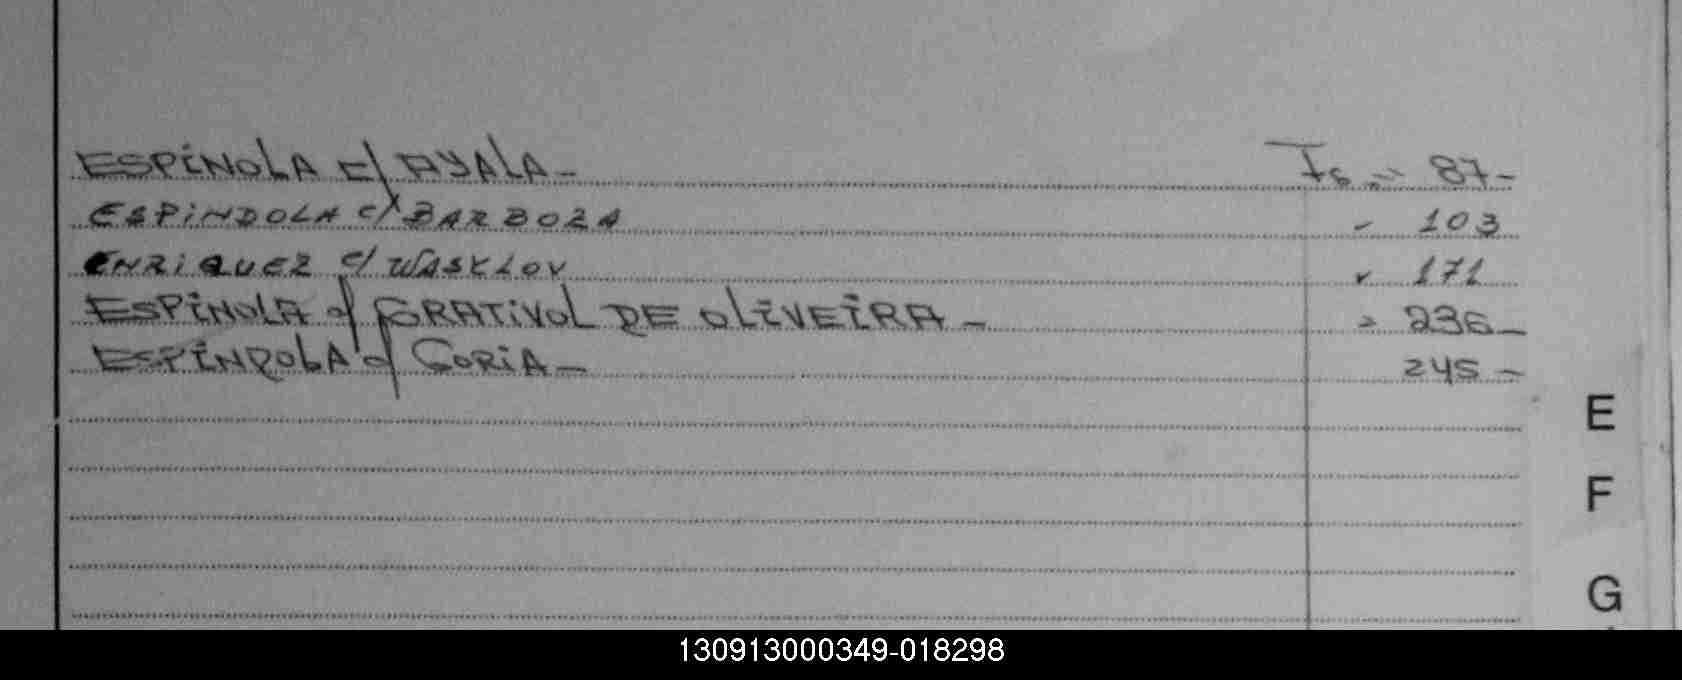 ESPINOLA c/ AYALA - Fs. " 87-
ESPINDOLA c/ BARBOZA " 103
ENRIQUEZ c/ WASKLOV " 171
ESPINOLA c/ GRATIVOL DE OLIVEIRA - " 236-
ESPINDOLA c/ CORIA - 245-
E
F
G
130913000349-018298